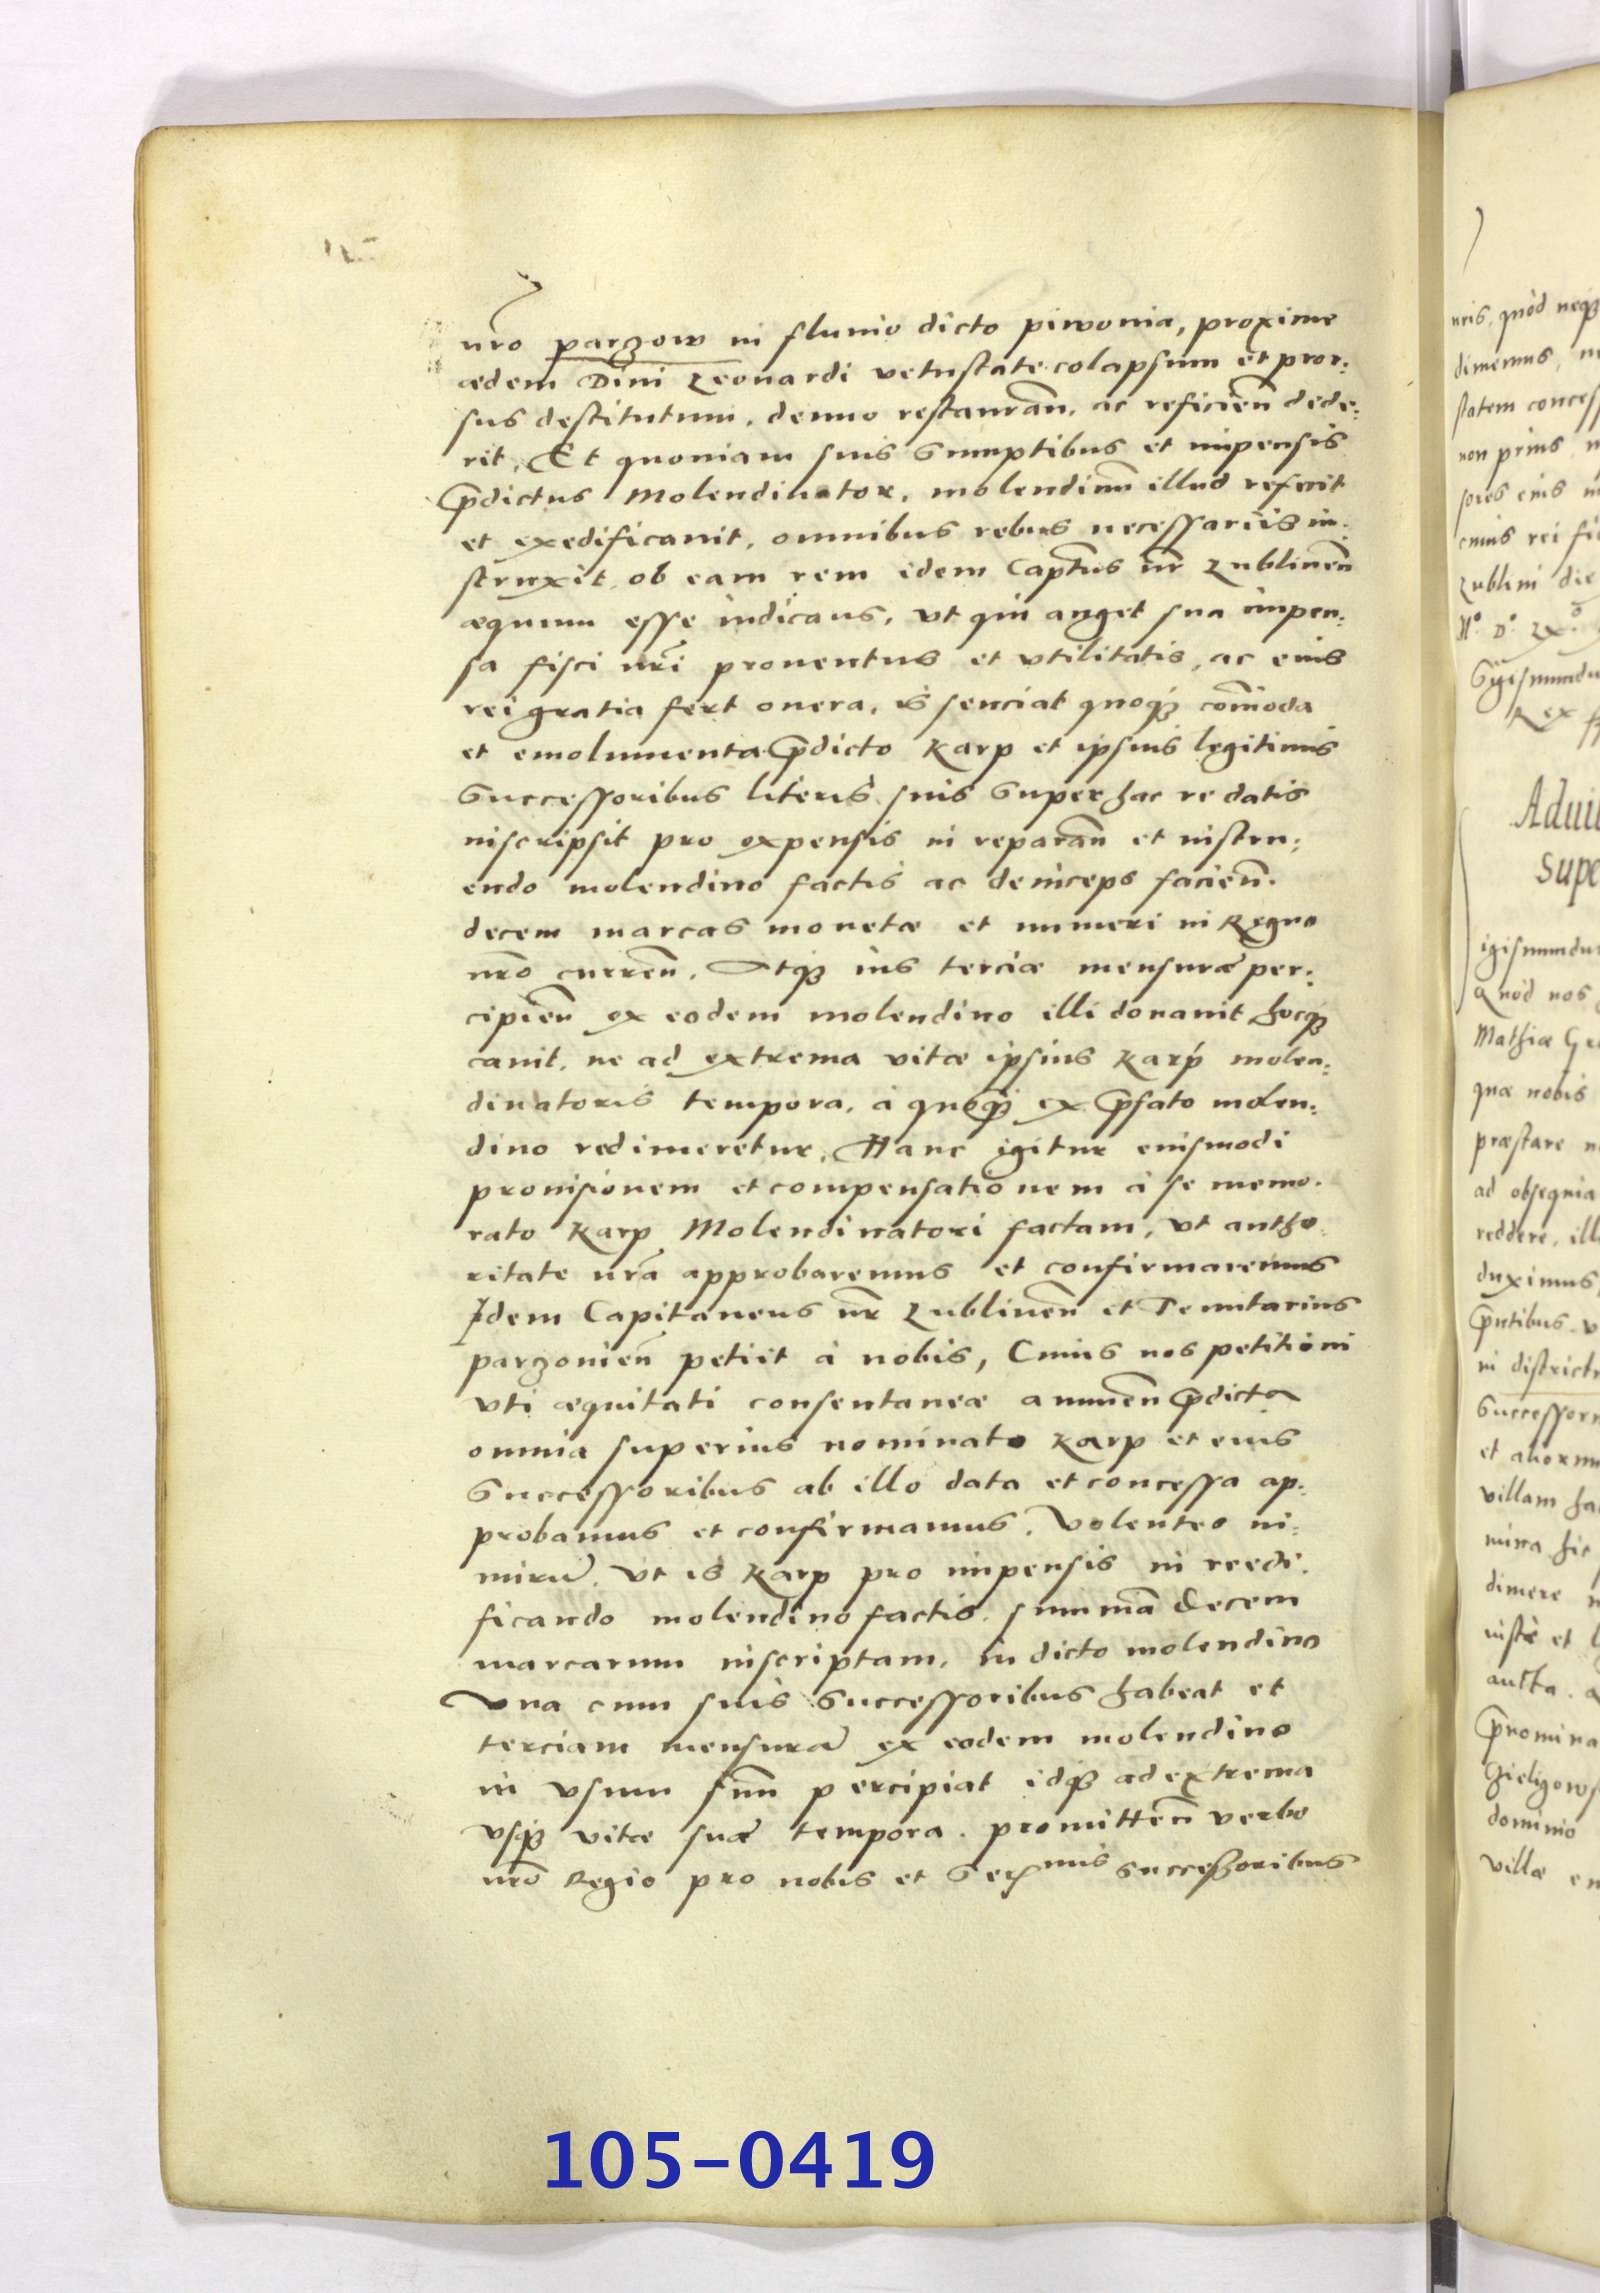 nr̃o parzow in fluuio dicto piwonia, proxime
ædem Diui Leonardi vetustate colapsum et pror:
sus destitutum, denuo restauran̄, ac reficien̄ dede:
rit, Et quoniam suis Sumptibus et impensis
p̄dictus Molendinator, molendinū illud refecit
et exedificauit, omnibus rebus necessariis in:
struxit, ob eam rem idem Capt̄us nr̄ Lublinen̄
æquum esse iudicaus, vt qui auget sua impen:
sa fisci nr̄i prouentus et vtilitatis, ac eius
rei gratia fert onera, is senciat quoq₃ com̄oda
et emolumenta p̄dicto Karp et ipsius legitimis
Successoribus literis suis Super hac re datis
inscripsit pro expensis in reparan̄ et instru:
endo molendino factis ac deinceps facien̄.
decem marcas monetæ et numeri in Regno
nr̄o curren̄. Atq₃ ius terciæ mensuræ per:
cipien̄ ex eodem molendino illi donauit hocq₃
cauit, ne ad extrema vitæ ipsius Karp molen:
dinatoris tempora, à quoq₃ ex p̄fato molen:
dino redimeretur, Hanc igitur eiusmodi
prouisionem et compensationem à se memo.
rato Karp Molendinatori factam, vt autho
ritate nr̄a approbaremus et confirmaremus
Idem Capitaneus nr̄ Lublinen̄ et Tenutarius
parzouien̄ petiit à nobis, Cuius nos petitioni
vti æquitati consentaneæ annuen̄ p̄dicta
omnia superius nominato Karp et eius
Successoribus ab illo data et concessa ap:
probamus et confirmamus. Volentes ni:
mirū. vt is Karp pro impensis in reedi.
ficando molendino factis, summā decem
marcarum inscriptam, in dicto molendino
Vna cum suis Successoribus habeat et
terciam mensurā ex eodem molendino
in vsum suū percipiat idq₃ ad extrema
vsq₃ vitæ suæ tempora. promitten̄ verbo
nr̄o Regio pro nobis et Ser^mis successoribus
105-0419
nris, quòd neq₃
dimemus,
statem concess
non prius
sores eius
cuius rei fi
Lublini die
Sigismundu
Rex
Adui
Supe
igismundu
Quod nos
Mathiæ
quæ nobis
præstare
ad obsequia
reddere, ill
duximus
p̄ntibus
in districtu
Successor
et aliorum
villam ha
dimere
iuste et
dominio
villæ